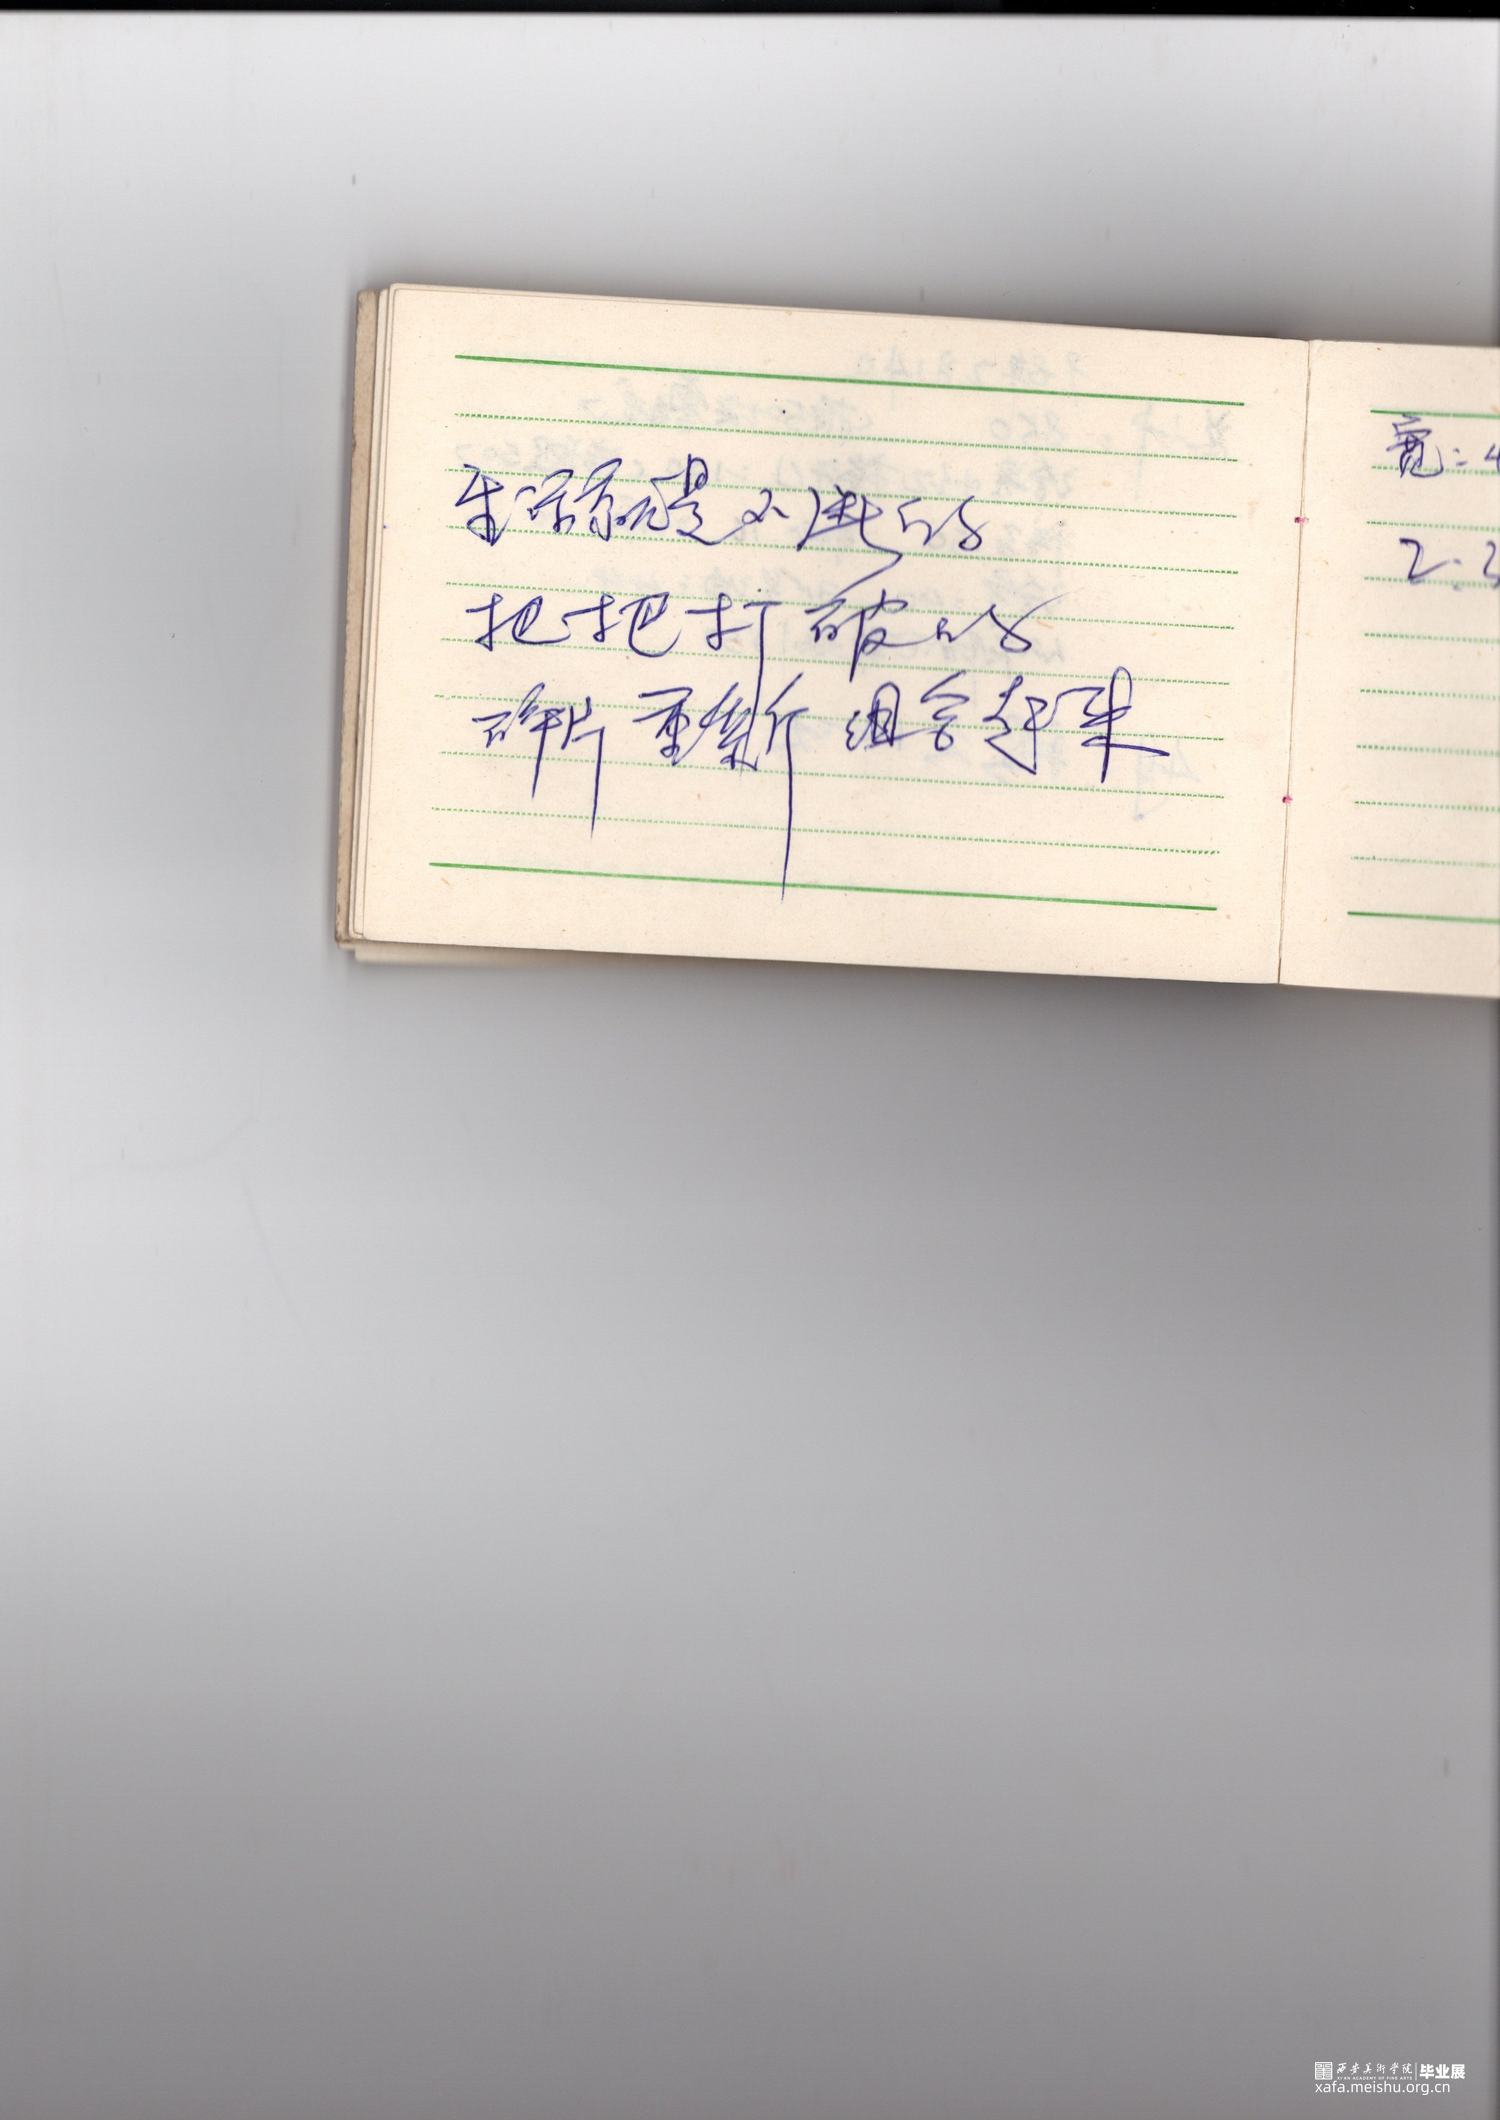 生活就是不断的
把把打破的
碎片重新组合起来
宽：4
2.3
西安美术学院 毕业展
XI'AN ACADEMY OF FINE ARTS
xafa.meishu.org.cn